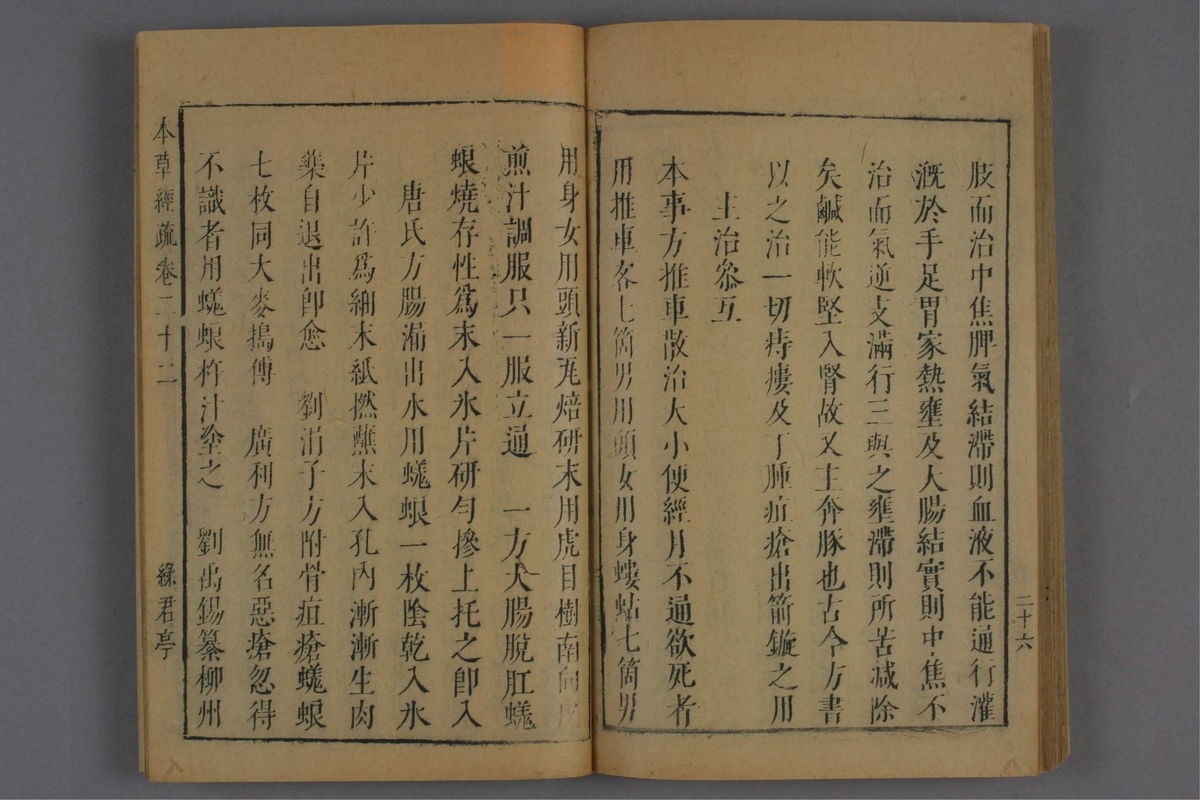 二十六
肢而治中焦脾氣結滯則血液不能通行灌
溉於手足胃家熱壅及大腸結實則中焦不
治而氣逆支滿行三與之壅滯則所苦減除
矣鹹能軟堅入腎故又主奔豚也古今方書
以之治一切痔瘻及丁腫疽瘡出箭鏃之用
主治叅互
本事方推車散治大小便經月不通欲死者
用推車客七箇男用頭女用身螻蛄七箇男
用身女用頭新瓦焙研末用虎目樹南向皮
煎汁調服只一服立通　一方大腸脫肛蜣
蜋燒存性爲末入氷片研勻摻上托之卽入
唐氏方腸漏出水用蜣蜋一枚陰乾入氷
片少許爲細末紙撚蘸末入孔內漸漸生肉
藥自退出卽愈　劉涓子方附骨疽瘡蜣蜋
七枚同大麥搗傅　廣利方無名惡瘡忽得
不識者用蜣蜋杵汁塗之　劉禹錫纂柳州
本草經疏卷二十二
綠君亭